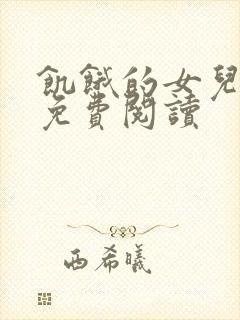 飢餓的女兒
免費閱讀
西希曦